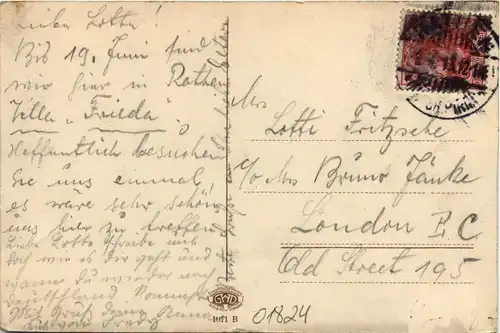 Liebe Lotte!
Bis 19. Juni sind
wir hier in Rathen
Villa „Frieda"
Hoffentlich besuchen
Sie uns einmal,
es wäre sehr schön
uns hier zu treffen.
Liebe Lotte schreibe uns
doch wie es dir geht und
wann du wieder nach
Deutschland kommst
Mrs
Lotti Fritzsche
c/o Mrs Bruno Jänke
London E.C
Old Street 195
GND
1071 B
01824